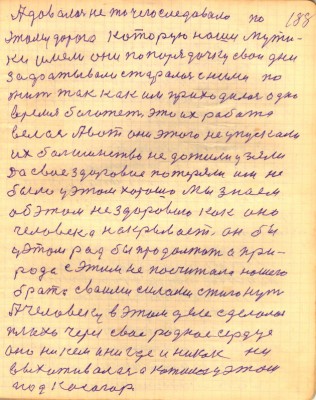 А довалося не то чего следовало по 188
этому дорого которую наши мути-
ки имели они по порядочку свои дни
задрачывали старалося с ними по
тит так как им приходилося одно
время боготет, это их работа
велася А вот они этого не упускали
их балшинство не дотили узяли
да свое здоровие потеряли им не
было у этом хорошо Мы знаем
об этом не здоровию как оно
человека накрывает. он бы
у этом рад бы продолжат а при-
рода с этим не посчитала нашего
брата своими силами стигнут
А человеку в этом деле сделалося
плахо через свое родное сердце
оно ни кем а ни где и никак не
выхитивалася а котилося у этом
под косогор